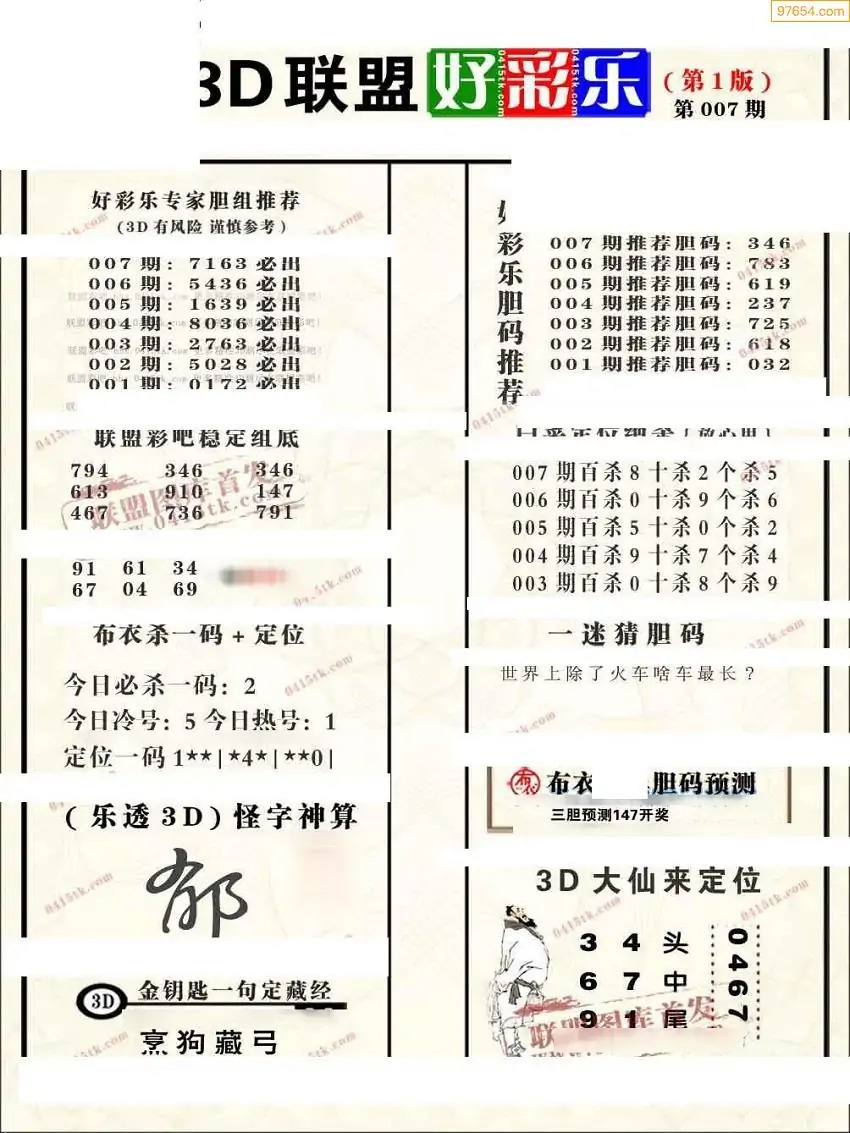 97654.com
3D联盟好彩乐
(第1版)
第007期
好彩乐专家胆组推荐
(3D有风险 谨慎参考)
007期:7163必出
006期:5436必出
005期:1639必出
004期:8036必出
003期:2763必出
002期:5028必出
001期:0172必出
联盟彩吧稳定组底
794 346 346
613 910 147
467 736 791
91 61 34
67 04 69
布衣杀一码+定位
今日必杀一码:2
今日冷号:5 今日热号:1
定位一码1**|*4*|**0|
(乐透3D)怪字神算
郁
3D 金钥匙一句定藏经
烹狗藏弓
彩乐胆码推荐
007期推荐胆码:346
006期推荐胆码:783
005期推荐胆码:619
004期推荐胆码:237
003期推荐胆码:725
002期推荐胆码:618
001期推荐胆码:032
007期百杀8十杀2个杀5
006期百杀0十杀9个杀6
005期百杀5十杀0个杀2
004期百杀9十杀7个杀4
003期百杀0十杀8个杀9
一迷猜胆码
世界上除了火车啥车最长?
布衣 胆码预测
三胆预测147开奖
3D大仙来定位
3 4 头
6 7 中
9 1 尾
0467
联盟图库首发
www.0415tk.com
0415tk.com